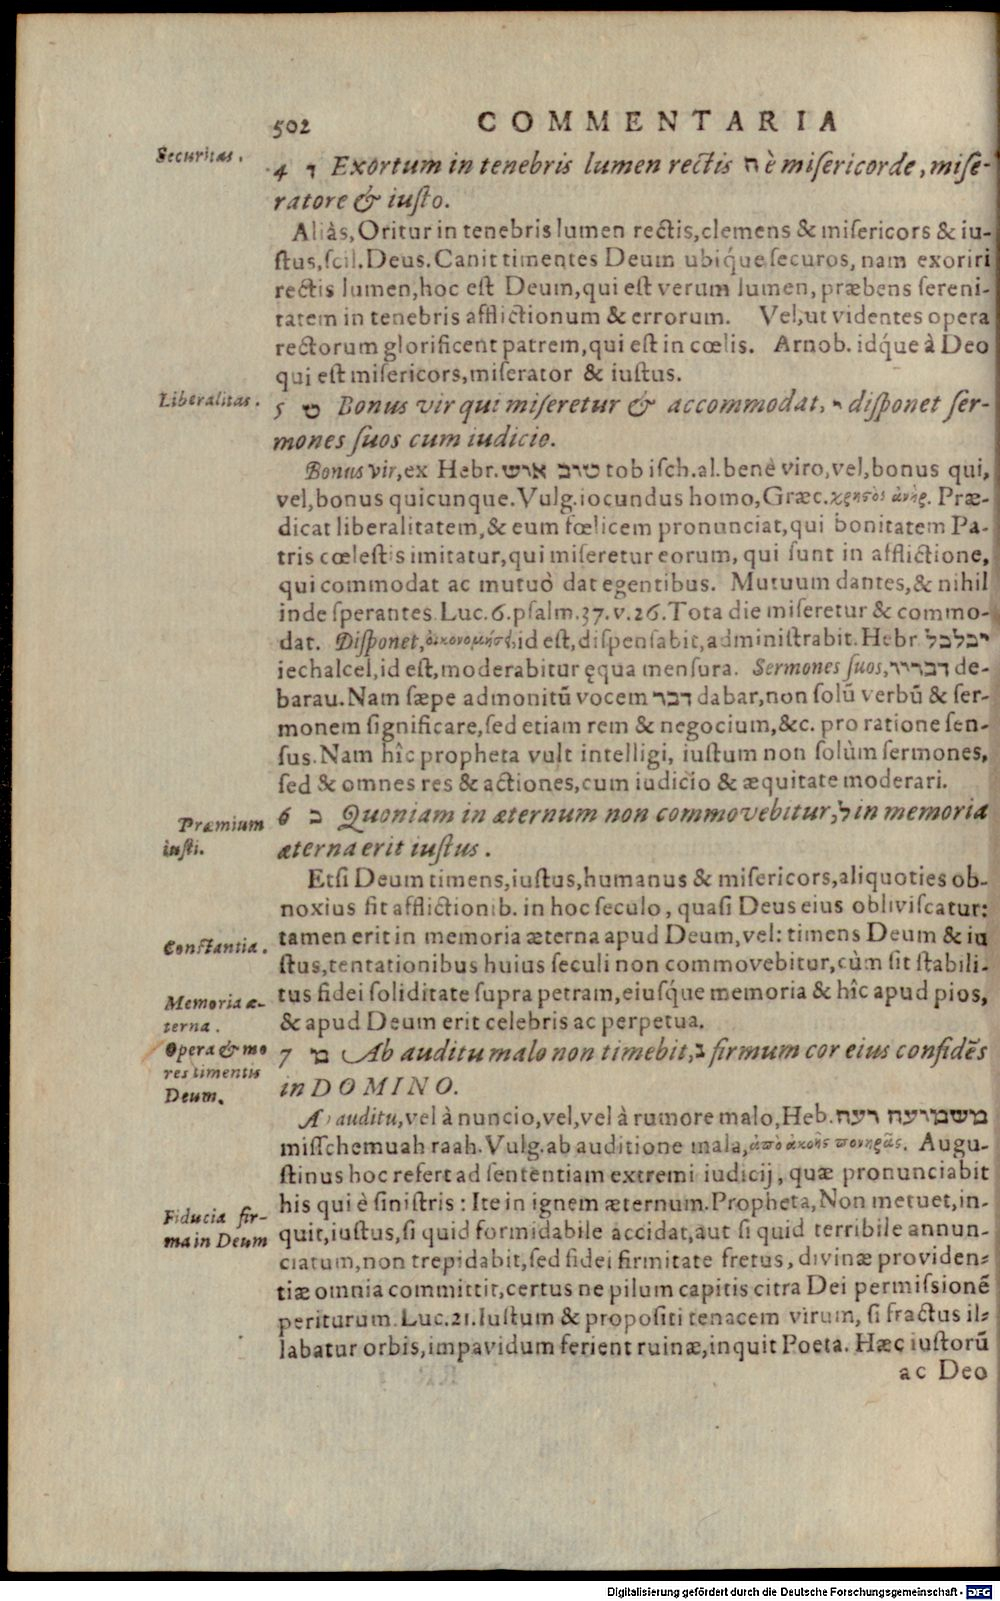 502 COMMENTARIA
Securitas.
4 ז Exortum in tenebris lumen rectis ח è misericorde, mise-
ratore & iusto.
Aliàs, Oritur in tenebris lumen rectis, clemens & misericors & iu-
stus, scil. Deus. Canit timentes Deum ubiq́ue securos, nam exoriri
rectis lumen, hoc est Deum, qui est verum lumen, præbens sereni-
tatem in tenebris afflictionum & errorum. Vel, ut videntes opera
rectorum glorificent patrem, qui est in cœlis. Arnob. idq́ue à Deo
qui est misericors, miserator & iustus.
Liberalitas.
5 ט Bonus vir qui miseretur & accommodat, י disponet ser-
mones suos cum iudicio.
Bonus vir, ex Hebr. טוב איש tob isch. al. benè viro, vel, bonus qui,
vel, bonus quicunque. Vulg. iocundus homo, Græc. χρηστὸς ἀνὴρ. Præ-
dicat liberalitatem, & eum fœlicem pronunciat, qui bonitatem Pa-
tris cœlestis imitatur, qui miseretur eorum, qui sunt in afflictione,
qui commodat ac mutuò dat egentibus. Mutuum dantes, & nihil
inde sperantes Luc. 6. psalm. 37. v. 26. Tota die miseretur & commo-
dat. Disponet, οἰκονομήσει, id est, dispensabit, administrabit. Hebr יכלכל
iechalcel, id est, moderabitur ęqua mensura. Sermones suos, דבריו de-
barau. Nam sæpe admonitũ vocem דבר dabar, non solũ verbũ & ser-
monem significare, sed etiam rem & negocium, &c. pro ratione sen-
sus. Nam hîc propheta vult intelligi, iustum non solùm sermones,
sed & omnes res & actiones, cum iudicio & æquitate moderari.
Præmium
iusti.
6 כ Quoniam in æternum non commovebitur, ל in memoria
æterna erit iustus.
Etsi Deum timens, iustus, humanus & misericors, aliquoties ob-
noxius sit afflictionib. in hoc seculo, quasi Deus eius obliviscatur:
Constantia.
tamen erit in memoria æterna apud Deum, vel: timens Deum & iu
stus, tentationibus huius seculi non commovebitur, cùm sit stabili-
Memoria æ-
terna.
tus fidei soliditate supra petram, eiusq́ue memoria & hîc apud pios,
& apud Deum erit celebris ac perpetua.
Opera & mo
res timentis
Deum.
7 מ Ab auditu malo non timebit, נ firmum cor eius confidẽs
in DOMINO.
Ab auditu, vel à nuncio, vel, vel à rumore malo, Heb. משמועה רעה
misschemuah raah. Vulg. ab auditione mala, ἀπὸ ἀκοῆς πονηρᾶς. Augu-
stinus hoc refert ad sententiam extremi iudicij, quæ pronunciabit
his qui è sinistris: Ite in ignem æternum. Propheta, Non metuet, in-
Fiducia fir-
ma in Deum
quit, iustus, si quid formidabile accidat, aut si quid terribile annun-
ciatum, non trepidabit, sed fidei firmitate fretus, divinæ providen-
tiæ omnia committit, certus ne pilum capitis citra Dei permissionẽ
periturum. Luc. 21. Iustum & propositi tenacem virum, si fractus il-
labatur orbis, impavidum ferient ruinæ, inquit Poeta. Hæc iustorũ
ac Deo
Digitalisierung gefördert durch die Deutsche Forschungsgemeinschaft - DFG